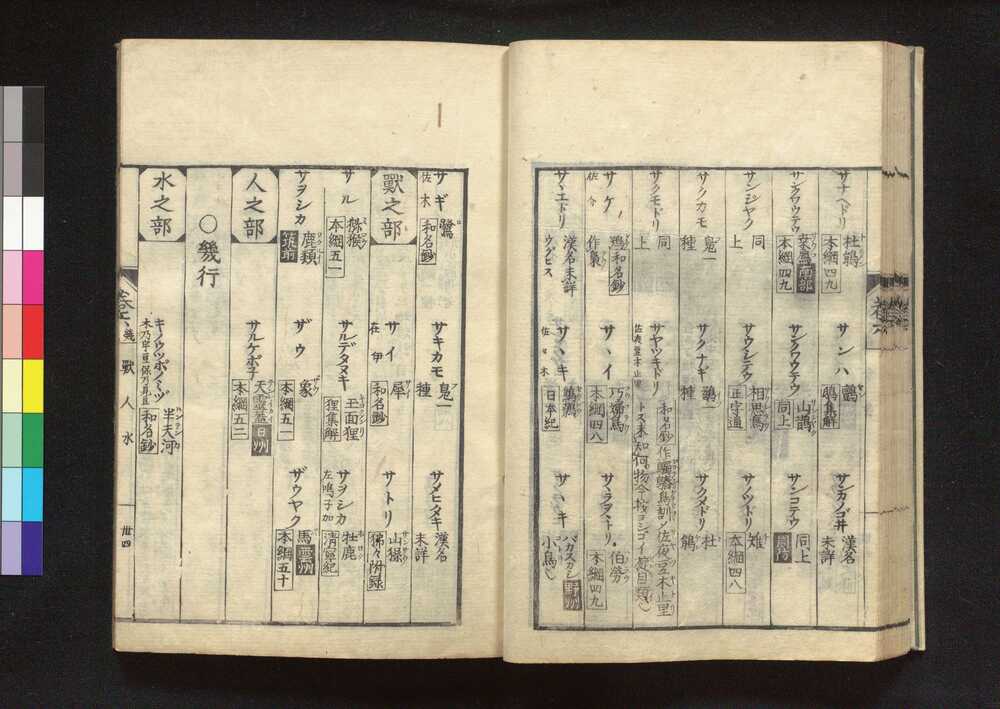 サナヘドリ 杜鵑 本綱四九
サンハ 鸕集解
サンカノゴ井 漢名未詳
サンクワウテウ 桑鳸 南部 本綱四九
サンクワウテウ 山鵲 同上
サンコテウ 同上
サンジヤク 同上
サウシテウ 相思鳥 正字通
サノツドリ 雉 本綱四八
サクカモ 鳬一種
サクナギ 鷸一種
サクメドリ 杜鵑
サクモドリ 同上
サヤツキドリ
佐夜豆木止里
和名鈔作
佐夜豆木止里
トス未知何物今按ヨシゴイ
サケ 佐介 鴗和名鈔作梟
サヽイ 巧婦鳥 本綱四八
伯勞 本綱四九
サヽエドリ 漢名未詳 ウグヒス
サヽキ 佐々木 鷦鷯 日本紀
サヽキ バカスカシ 野州 小鳥也
サギ 佐木 鷺 和名鈔
サキカモ 鳬一種
サメヒタキ 漢名未詳
獸之部
サイ 在伊 犀 和名鈔
サトリ 山𤢖 狒々附録
サル 猕猴 本綱五一
サルデタヌキ 玉面狸 狸集解
サヲシカ 左鳴子加 牡鹿 清寧紀
サヲシカ 鹿類 筑前
ザウ 象 本綱五一
ザウヤク 馬 雲州 本綱五十
人之部
サルケポ子 天靈蓋 日州 本綱五二
〇幾行
水之部
キノウツボノミヅ 半天河 和名鈔
卷六 幾 獸 人 水 卅四